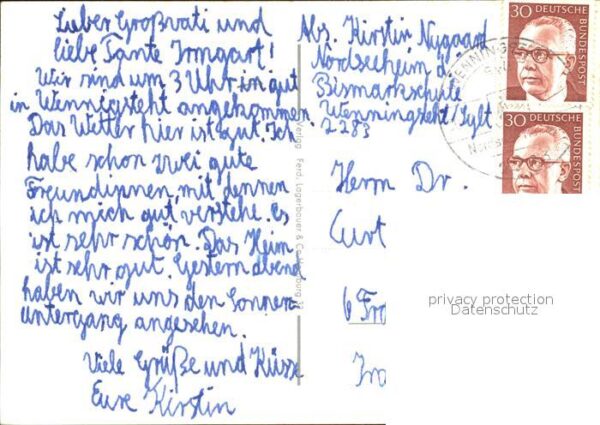 Lieber Großvati und
liebe Tante Irmgart!
Wir sind um 3 Uhr in gut
in Wennigsteht angekommen
Das Wetter hier ist gut. Ich
habe schon zwei gute
Freundinnen, mit dennen
ich mich gut verstehe. Es
ist sehr schön. Das Heim
ist sehr gut. Gestern abend
haben wir uns den Sonnen-
untergang angesehen.
Viele Grüße und Küsse
Eure Kirstin
Verlag Ferd. Lagerbauer & Co. Hamburg
Abs. Kirstin Nugaard
Nordseeheim d.
Bismarkschule
Wenningsteht/Sylt
2283
Herrn Dr.
Curt
6 Fra
30 DEUTSCHE BUNDESPOST
30 DEUTSCHE BUNDESPOST
privacy protection
Datenschutz